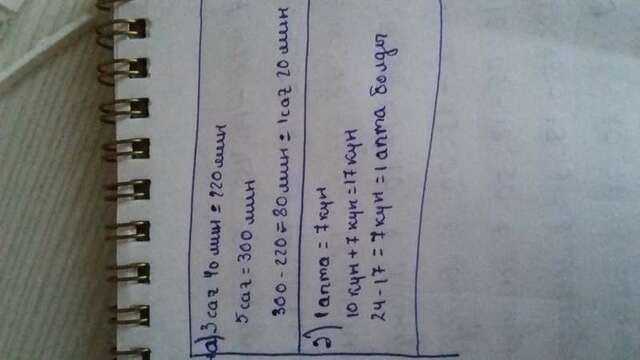 а) 3 саг 40 мин = 220 мин
5 саг = 300 мин
300 - 220 = 80 мин = 1 саг 20 мин
2) 1 апта = 7 күн
10 күн + 7 күн = 17 күн
24 - 17 = 7 күн = 1 апта болды